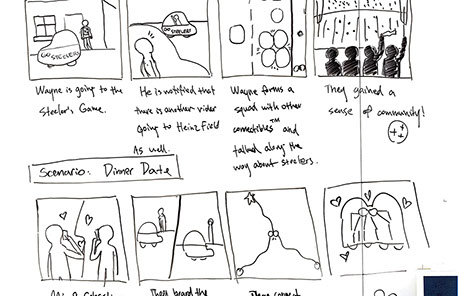 GO STEELERS
GO STEELERS
Wayne is going to the
Steelor's Game.
He is notified that
there is another rider
going to Heinz Field
As well.
Wayne forms a
squad with other
comectibles™ and
talked along the
way about steelers.
They gained a
sense of community!
Scenario: Dinner Date
They board the